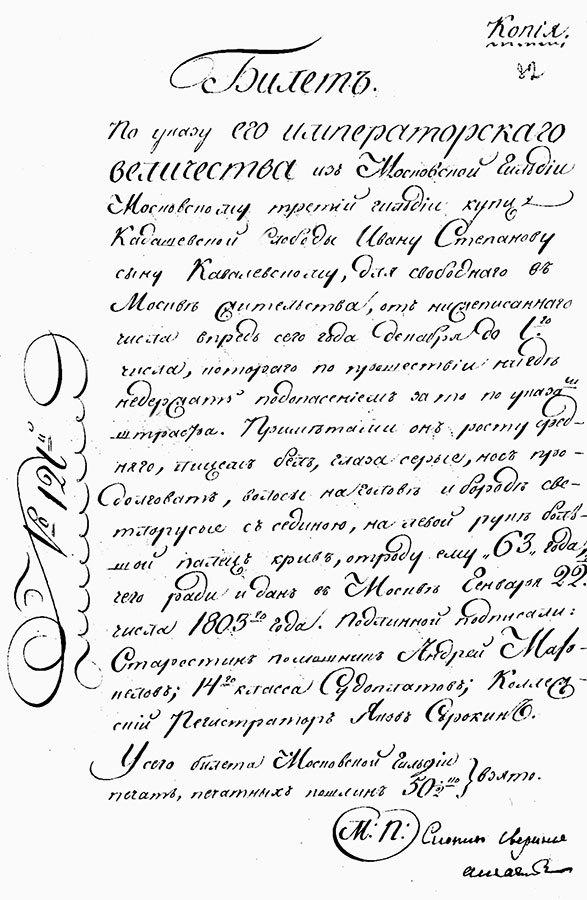 Копія.
Билетъ.
По указу его императорскаго
величества изъ Московской Гильдіи
Московскому третій гильдіи купцу
Кадашевской Слободы Ивану Степанову
сыну Кавалевскому, для свободнаго въ
Москвѣ жительства, отъ нижеписаннаго
числа впредь сего года декабря до 1.го
числа, котораго по прошествіи нигдѣ
недержать подопасеніемъ зато по указамъ
штрафа. Приметами онъ росту сред-
няго, лицемъ белъ, глаза серые, носъ про-
долговатъ, волосы наголовѣ и бородѣ све-
тлорусые съ сединою, на левой рукѣ боль-
шой палецъ кривъ, отроду ему „63„ года,
чего ради и данъ въ Москвѣ Генваря 22.
числа 1803го года. Подлинной подписали:
Старостинъ помошникъ Андрей
14го класса Судоплатовъ; Коллеж-
скій Регистраторъ Яковъ Сорокинъ.
У сего билета Московской Гильдіи
печать, печатныхъ пошлинъ 50 взято.
М: П:
№ 121й